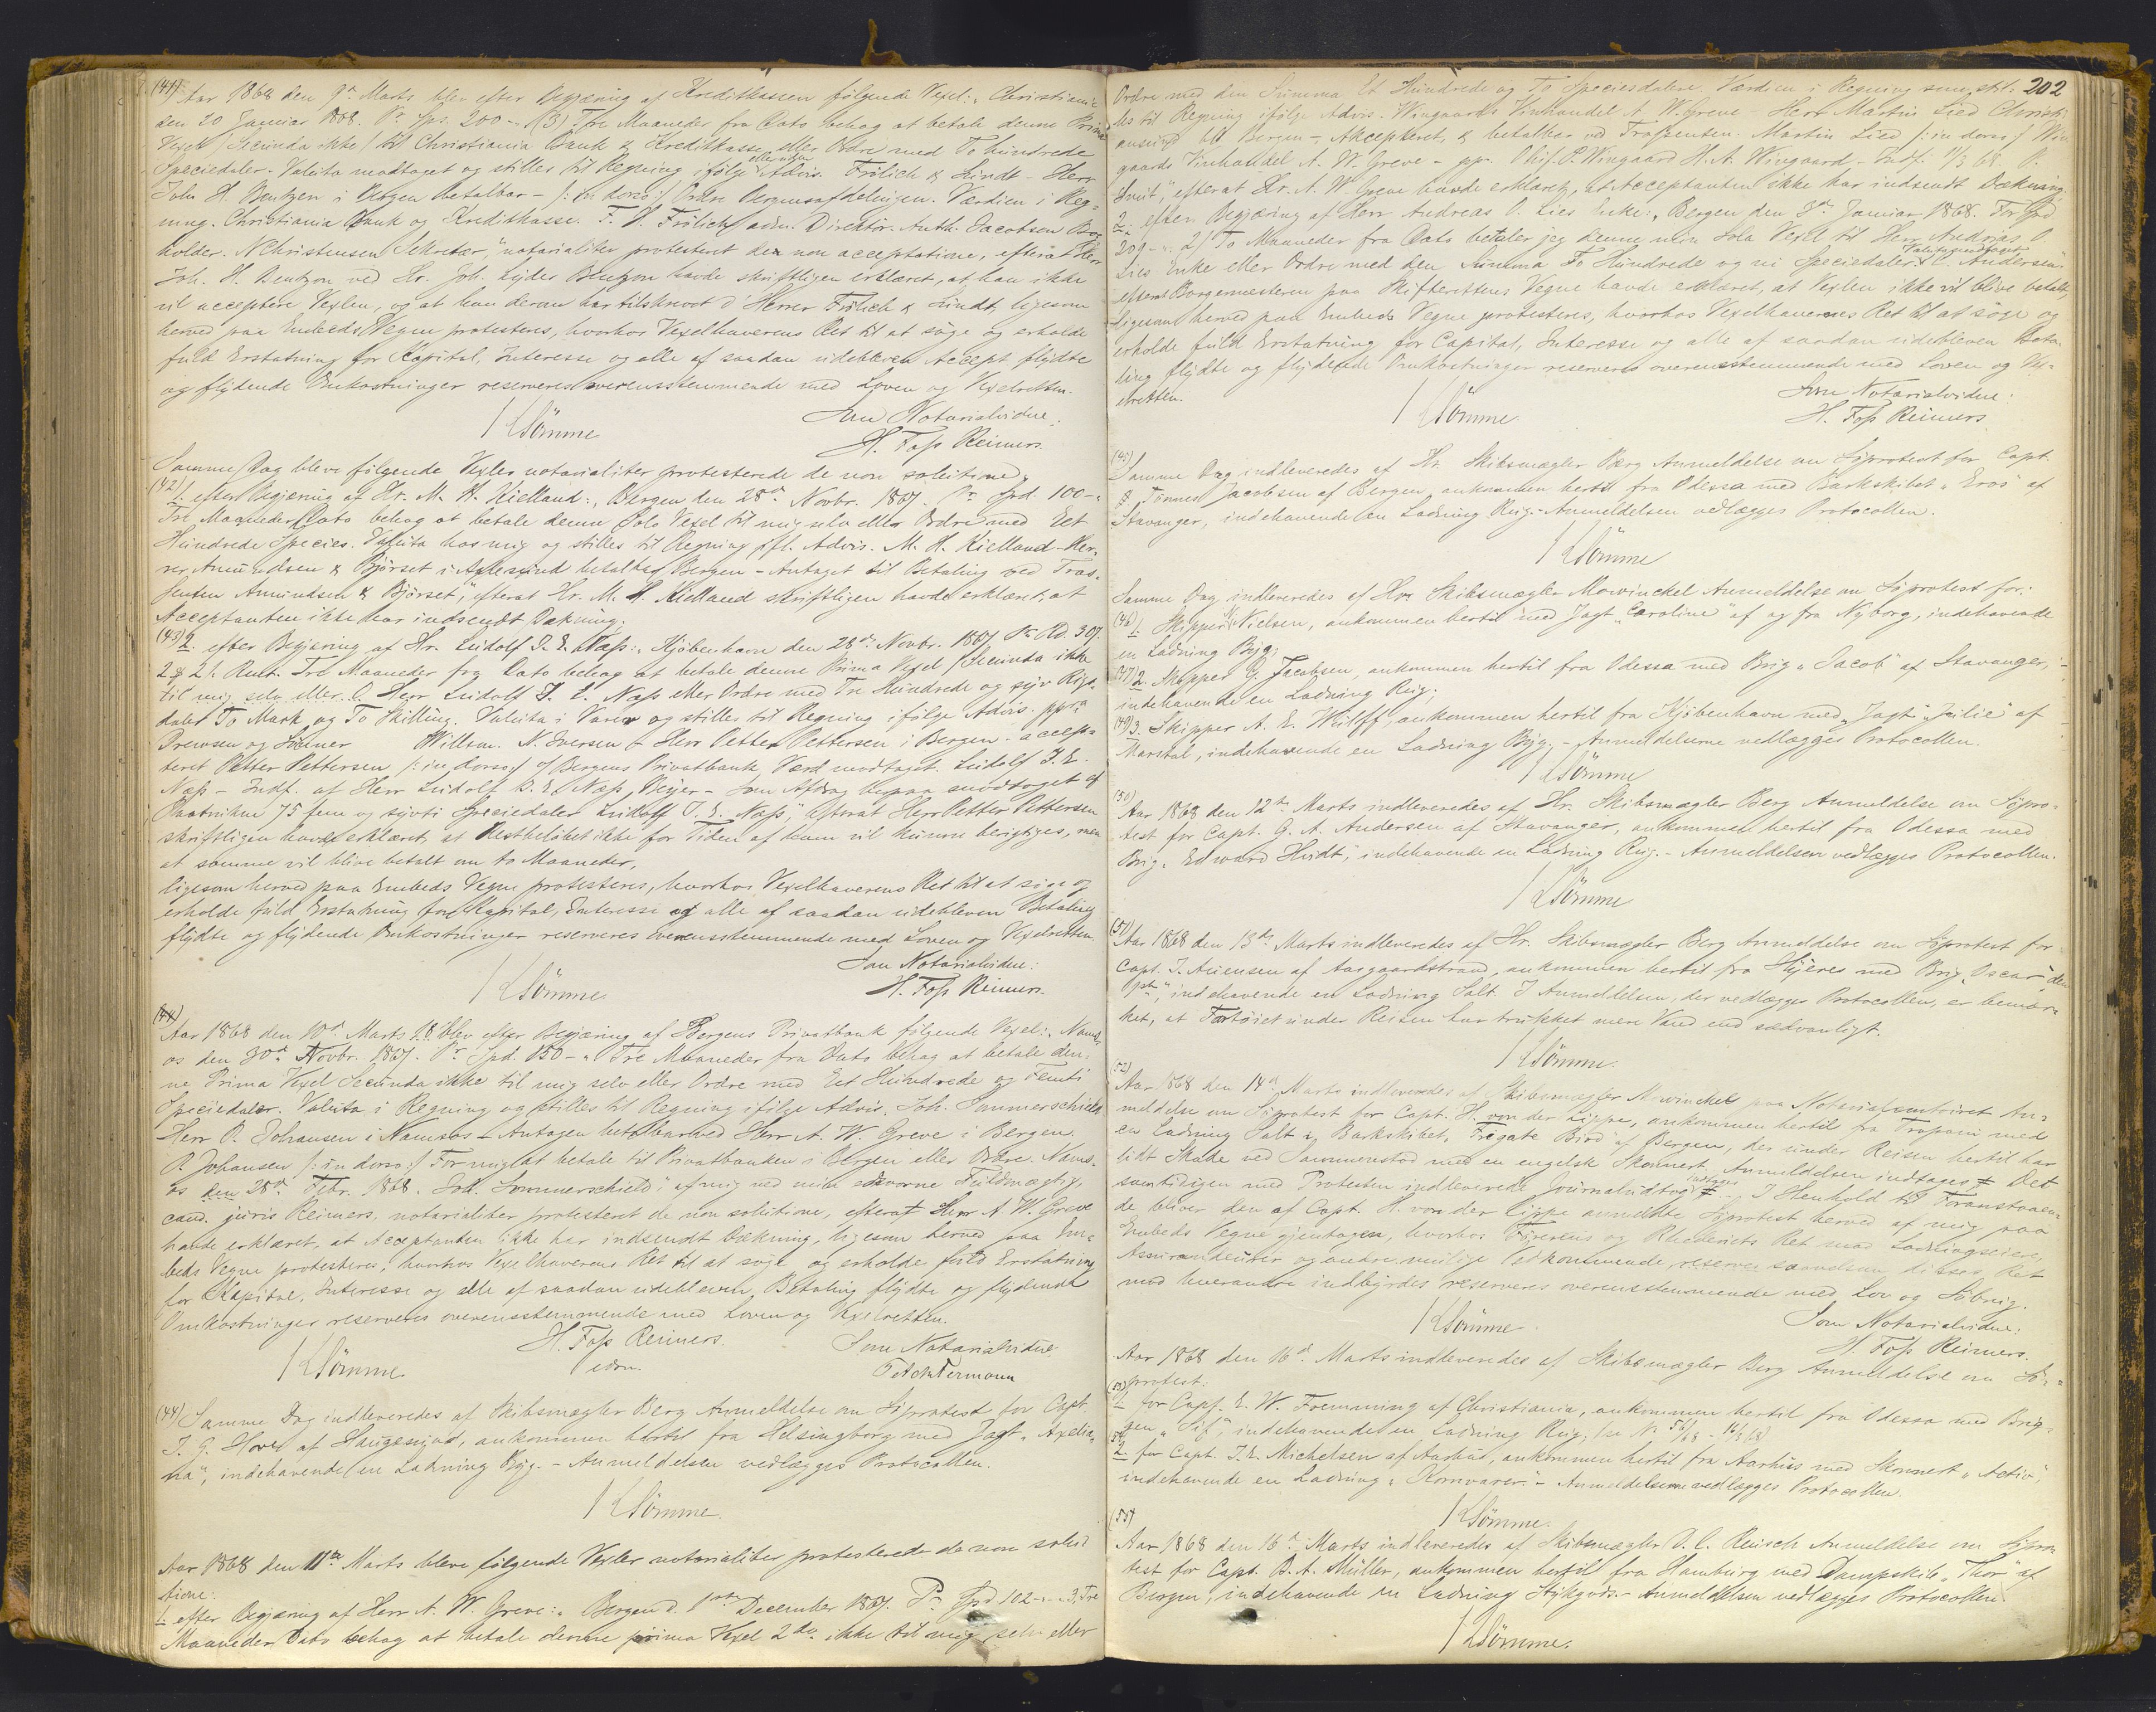 (41)
Aar 1868 den 9de Marts blev efter Begjæring af Kreditkassen følgende Vexel: „Christiania
den 20 Januar 1868. Pr Sps. 200 – (3) Tre Maaneder fra Dato behag at betale denne Prima
Vexel (Secunda ikke) til Christiania Bank & Kreditkasse eller Ordre med To hundrede
Speciedaler. Valuta modtaget og stilles til Regning ifølge eller uden Advis. Frölich & Lindt – Herr
John H. Bentzen i Bergen betalbar – /: in dorso :/ Ordre Bergensafdelingen. Værdien i Reg-
ning. Christiania Bank og Kreditkasse. F. H. Frölich adm. Direktör. Anth. Jacobsen Bog-
holder. N Christensen Sekretær, “ notarialiter protesteret de non acceptatione, efterat Herr
Joh. H. Bentzon ved Hr. Joh. Lyder Bentzon havde skriftligen erklæret, at han ikke
vil acceptere Vexlen, og at han derom har tilskrevet D'Herrer Frölich & Lindt, ligesom
herved paa Embeds Vegne protesteres, hvorhos Vexelhaverens Ret til at søge og erholde
fuld Erstatning for Kapital, Interesse og alle af saadan udebleven Accept flydte
og flydende Omkostninger reserveres overensstemmende med Loven og Vexelretten.
Som Notarialvidne:
K Sömme
H. Foss Reimers.
Samme Dag bleve følgende Vexler notarialiter protesterede de non solutione,
(42) 1. efter Begjæring af Hr. M. H. Kielland: „Bergen den 28de Novbr. 1867. Pr Spd. 100 –
Tre Maaneder Dato behag at betale denne Sola Vexel til mig selv eller Ordre med Eet
Hundrede Species. Valuta hos mig og stilles til Regning ifl. Advis. M. H. Kielland – Her-
rer Amundsen & Björset i betalbar Bergen – Antaget til Betaling ved Tras-
senten Amundsen & Björset“, efterat Hr. M. H. Kielland skriftligen havde erklæret, at
Acceptanten ikke har indsendt Dækning;
(43) 2. efter Begjæring af Hr. Ludolf J. E. Næss: „Kjöbenhavn den 28de Novbr. 1867. Pr Rd. 307.
2 & 2 ß. Rmt. Tre Maaneder fra Dato behag at betale denne Prima Vexel (Secunda ikke
til mig selv eller O. Herr Ludolf J. E. Næss eller Ordre med Tre Hundrede og syv Rigs-
daler To Mark og To Skilling. Valuta i Varer og stilles til Regning ifølge Advis. ppra
Drewsen og Willson. N. Iversen – Herr Petter Pettersen i Bergen – accep-
teret Petter Pettersen /: in dorso :/ Bergens Privatbank, Værd. modtaget. Ludolf J. E.
Næss – Indf. af Herr Ludolf J. E. Næss, Beyer – Som Afdrag herpaa modtaget af
75 fem og syvti Speciedaler Ludolf J. E. Næss“, efterat Herr Petter Pettersen
skriftligen havde erklæret, at Restbeløbet ikke for Tiden af ham vil kunne berigtiges, men
at samme vil blive betalt om to Maaneder,
ligesom herved paa Embeds Vegne protesteres, hvorhos Vexelhaverens Ret til at søge og
erholde fuld Erstatning for Kapital, Interesse og alle af saadan udebleven Betaling
flydte og flydende Omkostninger reserveres overensstemmende med Loven og Vexelretten.
Som Notarialvidne:
K Sömme
H. Foss Reimers.
(44)
Aar 1868 den 10de Marts blev efter Begjæring af Bergens Privatbank følgende Vexel: „Nams-
os den 30te Novbr. 1867. Pr Spd. 150 – „ Tre Maaneder fra Dato behag at betale den-
ne Prima Vexel Secunda ikke til mig selv eller Ordre med Eet Hundrede og Femti
Speciedaler. Valuta i Regning og stilles til Regning ifølge Advis. Joh. Sommerschield
Herr P. Johansen i Namsos – Antagen betalbar ved Herr A. W. Greve i Bergen.
P. Johansen /: in dorso :/ For mig at betale til Privatbanken i Bergen eller Ordre. Nams-
os den 28de Febr. 1868. Joh. Sommerschield“ af mig ved min edsvorne Fuldmægtig,
cand. juris Reimers, notarialiter protesteret de non solutione, efterat Herr A. W. Greve
havde erklæret, at Acceptanten ikke har indsendt Dækning, ligesom herved paa Em-
beds Vegne protesteres, hvorhos Vexelhaverens Ret til at søge og erholde fuld Erstatning
for Kapital, Interesse og alle af saadan udebleven Betaling flydte og flydende
Omkostninger reserveres overensstemmende med Loven og Vexelretten.
H. Foss Reimers. Som Notarialvidne
K Sömme
edsv.
(44) Samme Dag indleveredes af Skibsmægler Berg Anmeldelse om Søprotest for Capt.
J. G. Hove af Haugesund, ankommen hertil fra Helsingborg med Jagt „Axelia-
na“, indehavende en Ladning Byg. – Anmeldelsen vedlægges Protocollen.
K Sömme.
Aar 1868 den 11te Marts bleve følgende Vexler notarialiter protesterede de non solu-
tione:
1. efter Begjæring af Herr A. W. Greve: „Bergen d. December 1867. Pr Spd 102 – 3, Tre
Maaneder Dato behag at betale denne prima Vexel 2da ikke til mig selv eller
202
Ordre med den Summa Et Hundrede og To Speciesdalere. Værdien i Regning som stil-
les til Regning ifølge Advis. Wingaards Vinhandel A. W. Greve – Herr Martin Lied Christi-
ansund bet. Bergen – Akcepteret, & betalbar ved Trassenten. Martin Lied /: in dorso :/ Win-
gaards Vinhandel A. W. Greve – pp. Chrs. P. Wingaard H. A. Wingaard – Indf. 11/3 68.
Smit“, efterat Hr. A. W. Greve havde erklæret, at Acceptanten ikke har indsendt Dækning
2. efter Begjæring af Herr Andreas O. Lies Enke: „Bergen den 3de Januar 1868. For Spd
209 – 2) To Maaneder fra Dato betaler jeg denne min Sola Vexel til Herr Andreas O.
Lies Enke eller Ordre med den Summa To Hundrede og ni Speciedaler. Valuta modtaget C. Andersen“
efterat Borgermesteren paa Skifterettens Vegne havde erklæret, at Vexlen ikke vil blive betalt,
ligesom herved paa Embeds Vegne protesteres, hvorhos Vexelhavernes Ret til at søge og
erholde fuld Erstatning for Capital, Interesse og alle af saadan udebleven Beta-
ling flydte og flydende Omkostninger reserveres overensstemmende med Loven og Vex-
elretten.
Som Notarialvidne:
K Sömme
H. Foss Reimers
(45)
Samme Dag indleveredes af Hr. Skibsmægler Berg Anmeldelse om Søprotest for Capt.
Tönnes Jacobsen af Bergen, ankommen hertil fra Odessa med Barkskibet „Eros“ af
Stavanger, indehavende en Ladning Rug. – Anmeldelsen vedlægges Protocollen.
K Sömme
Samme Dag indleveredes af Hr. Skibsmægler Mowinckel Anmeldelse om Søprotest for:
(46) 1. Skipper Nielsen, ankommen hertil med Jagt „Caroline“ af og fra Nyborg, indehavende
en Ladning Byg;
(47) 2. Skipper G. Jacobsen, ankommen hertil fra Odessa med Brig „Jacob“ af Stavanger,
indehavende en Ladning Rug;
(49) 3. Skipper A. E. Wulff, ankommen hertil fra Kjøbenhavn med Jagt „Julie“ af
Marstal, indehavende en Ladning Byg. – Anmeldelserne vedlægges Protocollen.
K Sömme
(50)
Aar 1868 den 12te Marts indleveredes af Hr. Skibsmægler Berg Anmeldelse om Søpro-
test for Capt. G. A. Andersen af Stavanger, ankommen hertil fra Odessa med
Brig „Edward Hvidt“, indehavende en Ladning Rug. – Anmeldelsen vedlægges Protocollen.
K Sömme
(51)
Aar 1868 den 13de Marts indleveredes af Hr. Skibsmægler Berg Anmeldelse om Søprotest for
Capt. J. Ariensen af Aasgaardstrand, ankommen hertil fra Hyères med Brig „Oscar den
“, indehavende en Ladning Salt. I Anmeldelsen, der vedlægges Protocollen, er bemær-
ket, at Fartøiet under Reisen har trukket mere Vand end sædvanligt.
K Sömme.
(52)
Aar 1868 den 14de Marts indleveredes af Skibsmægler Mowinckel paa Notarialcontoiret An-
meldelse om Søprotest for Capt. H. von der Lippe, ankommen hertil fra Trapani med
en Ladning Salt i Barkskibet „Fregate Bird“ af Bergen, der under Reisen hertil har
lidt Skade ved Sammenstød med en engelsk Skonnert. Anmeldelsen indtages # Det
samtidigen med Protesten indleverede Journaludtog indtages #. I Henhold til Foranstaaen-
de bliver den af Capt. H. von der Lippe anmeldte Søprotest herved af mig paa
Embeds Vegne gjentagen, hvorhos Førerens og Rhederiets Ret mod Ladningseiere,
Assurandeurer og andre mulige Vedkommende, reserveres saavelsom disses Ret
mod hverandre indbyrdes reserveres overensstemmende med Lov og Søbrug.
Som Notarialvidne:
K Sömme
H. Foss Reimers.
Aar 1868 den 16de Marts indleveredes af Skibsmægler Berg Anmeldelse om Sø-
protest:
(53) 1. for Capt. E. W. Fremming af Christiania, ankommen hertil fra Odessa med Brig-
gen „Sif“, indehavende en Ladning Rug;
2. for Capt. J. E. Michelsen af Aarhus, ankommen hertil fra Aarhuus med Skonnert „Activ“,
indehavende en Ladning „Kornvarer“. – Anmeldelserne vedlægges Protocollen.
K Sömme.
(55)
Aar 1868 den 16de Marts indleveredes af Skibsmægler D. C. Reusch Anmeldelse om Søpro-
test for Capt. B. A. Müller, ankommen hertil fra Hamburg med Dampskib „Thor“ af
Bergen, indehavende en Ladning Stykgods. – Anmeldelsen vedlægges Protocollen.
K Sömme.